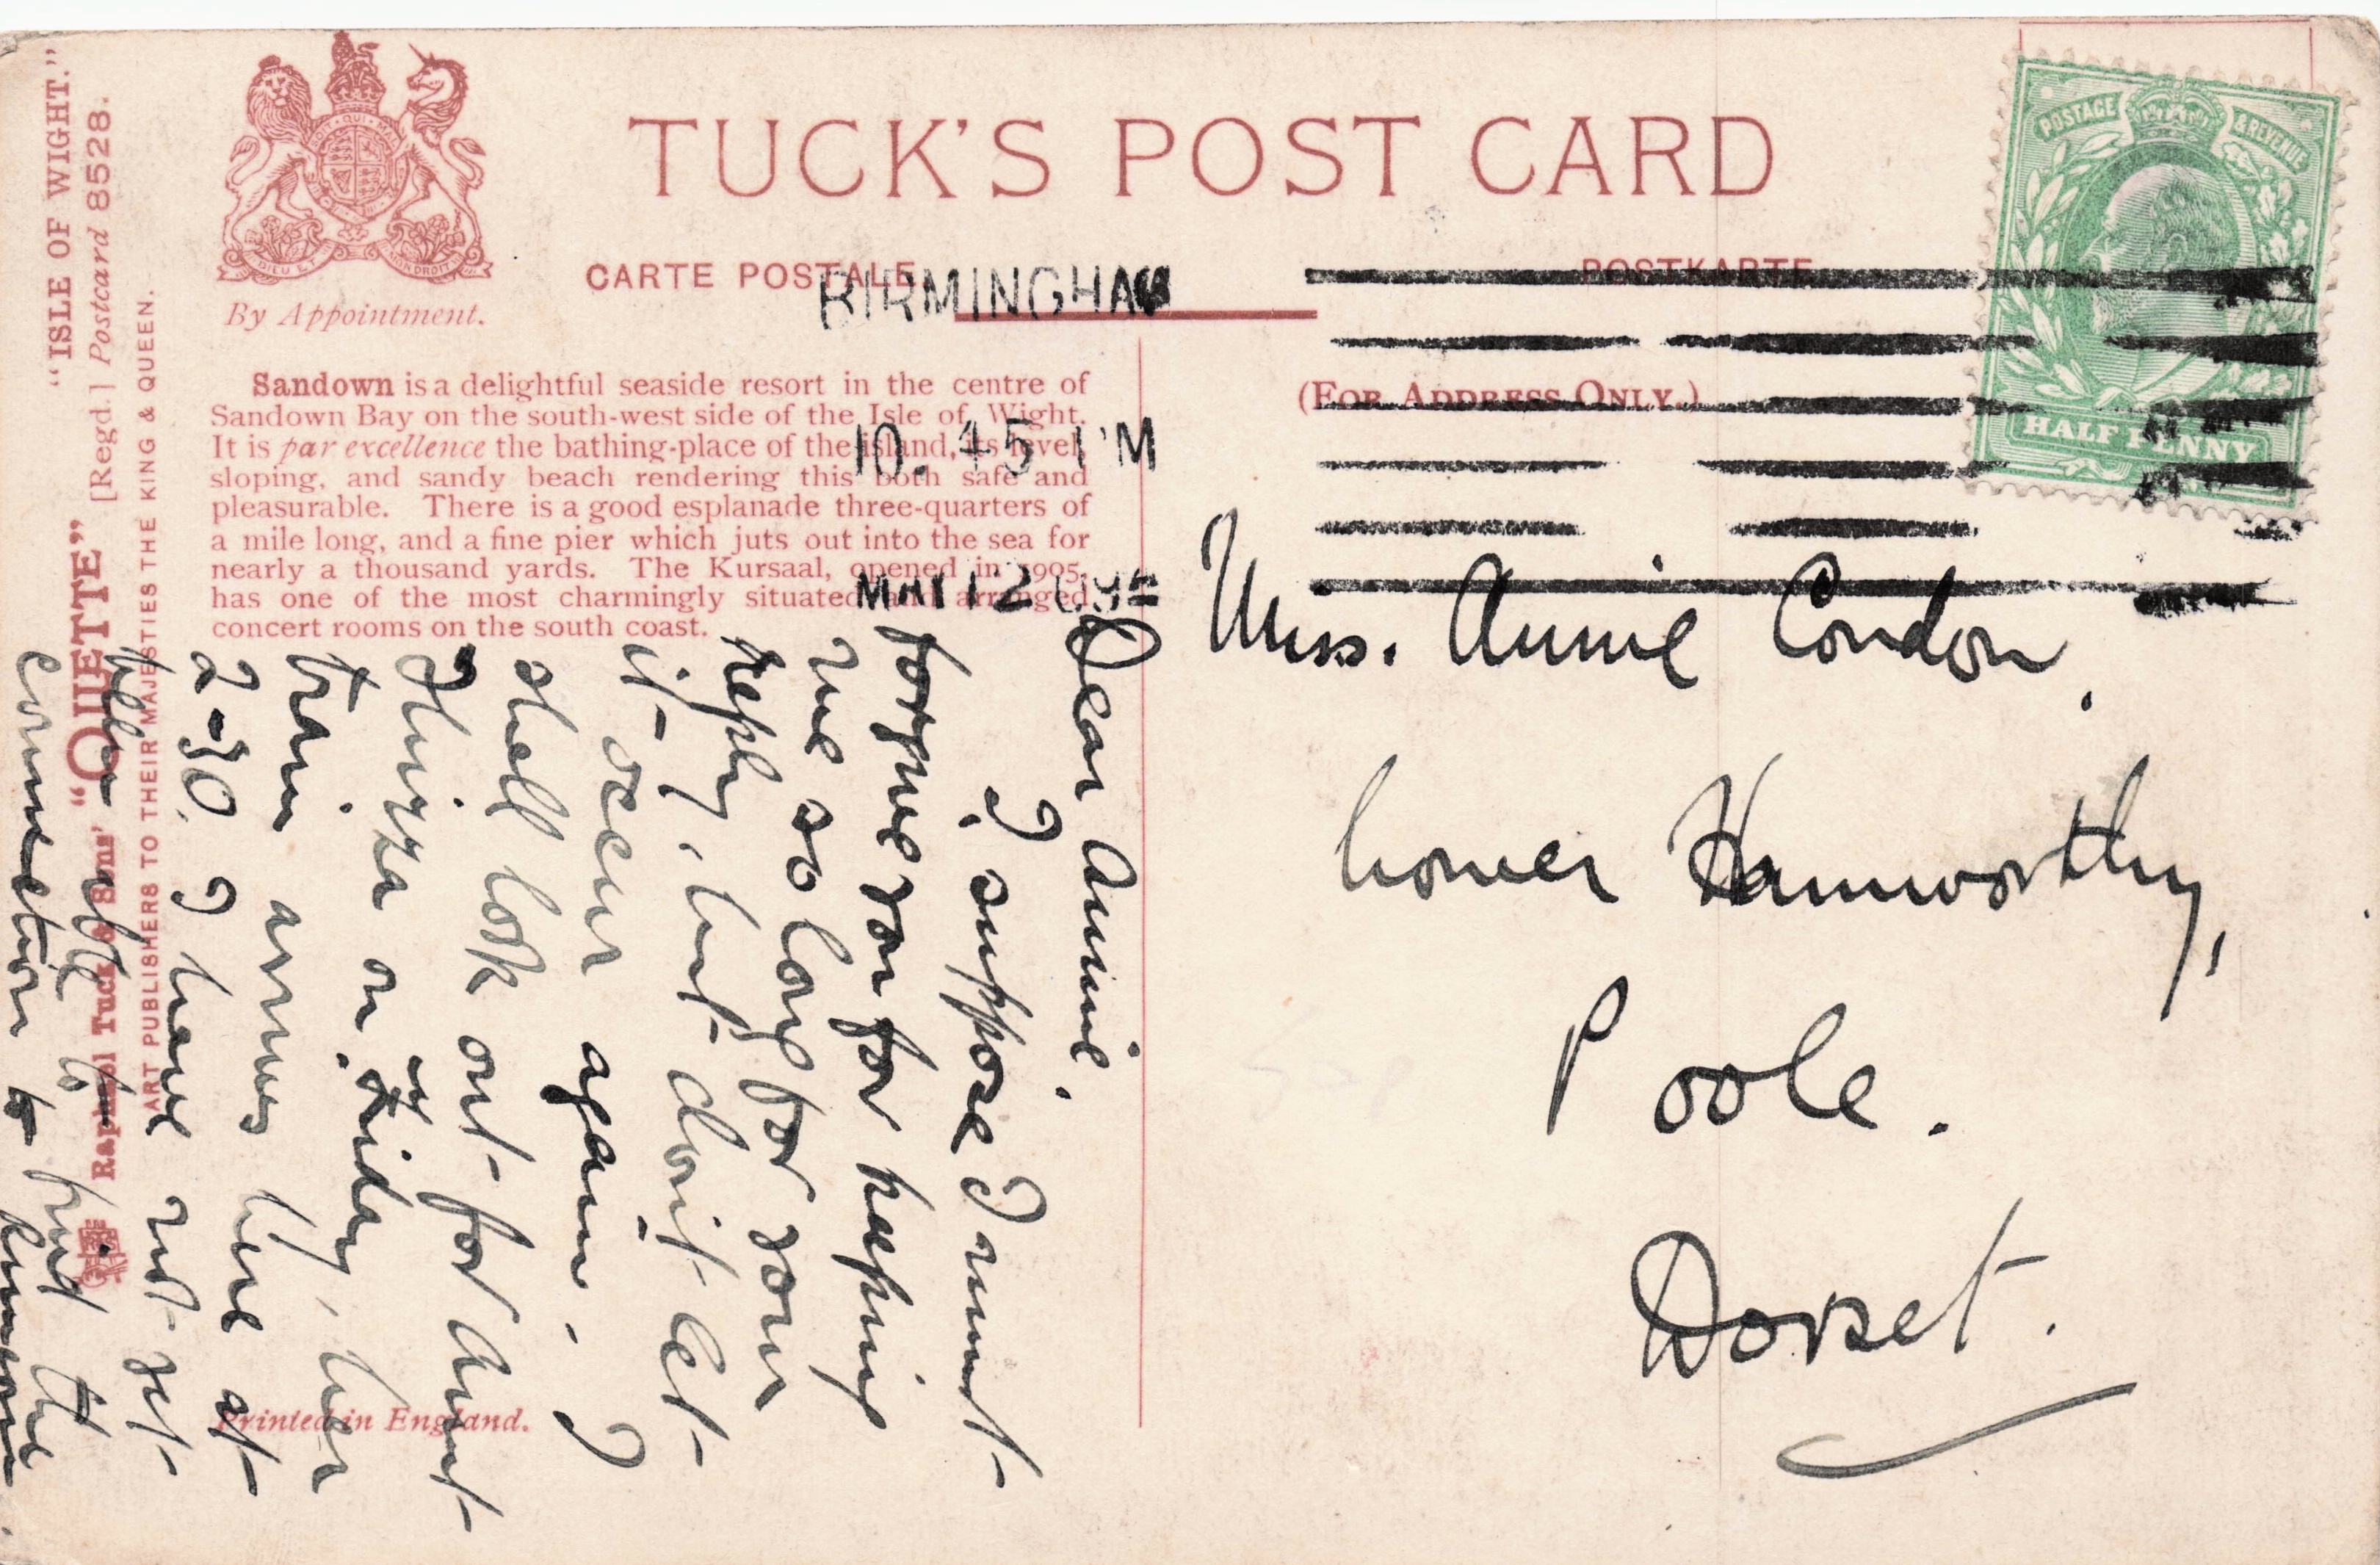 TUCK'S POST CARD
CARTE POSTALE
POSTKARTE
(FOR ADDRESS ONLY.)
By Appointment.
DIEU ET MON DROIT
"ISLE OF WIGHT."
[Regd.] Postcard 8552B.
Raphael Tuck & Sons' "OILETTE"
ART PUBLISHERS TO THEIR MAJESTIES THE KING & QUEEN.
Sandown is a delightful seaside resort in the centre of
Sandown Bay on the south-west side of the Isle of Wight.
It is par excellence the bathing-place of the island, its level,
sloping, and sandy beach rendering this both safe and
pleasurable. There is a good esplanade three-quarters of
a mile long, and a fine pier which juts out into the sea for
nearly a thousand yards. The Kursaal, opened in 1905,
has one of the most charmingly situated and arranged
concert rooms on the south coast.
Printed in England.
BIRMINGHAM
10.45 PM
MAY 12
POSTAGE & REVENUE
HALF PENNY
Miss. Annie Condon,
Lower Hamworthy,
Poole.
Dorset.
Dear Annie,
I suppose I must
forgive you for keeping
me so long for your
reply, but don't let
it occur again. I
shall look out for Aunt
Thirza on Friday, her
train arrives here at
2-30. I have not yet
been able to find the
connection to